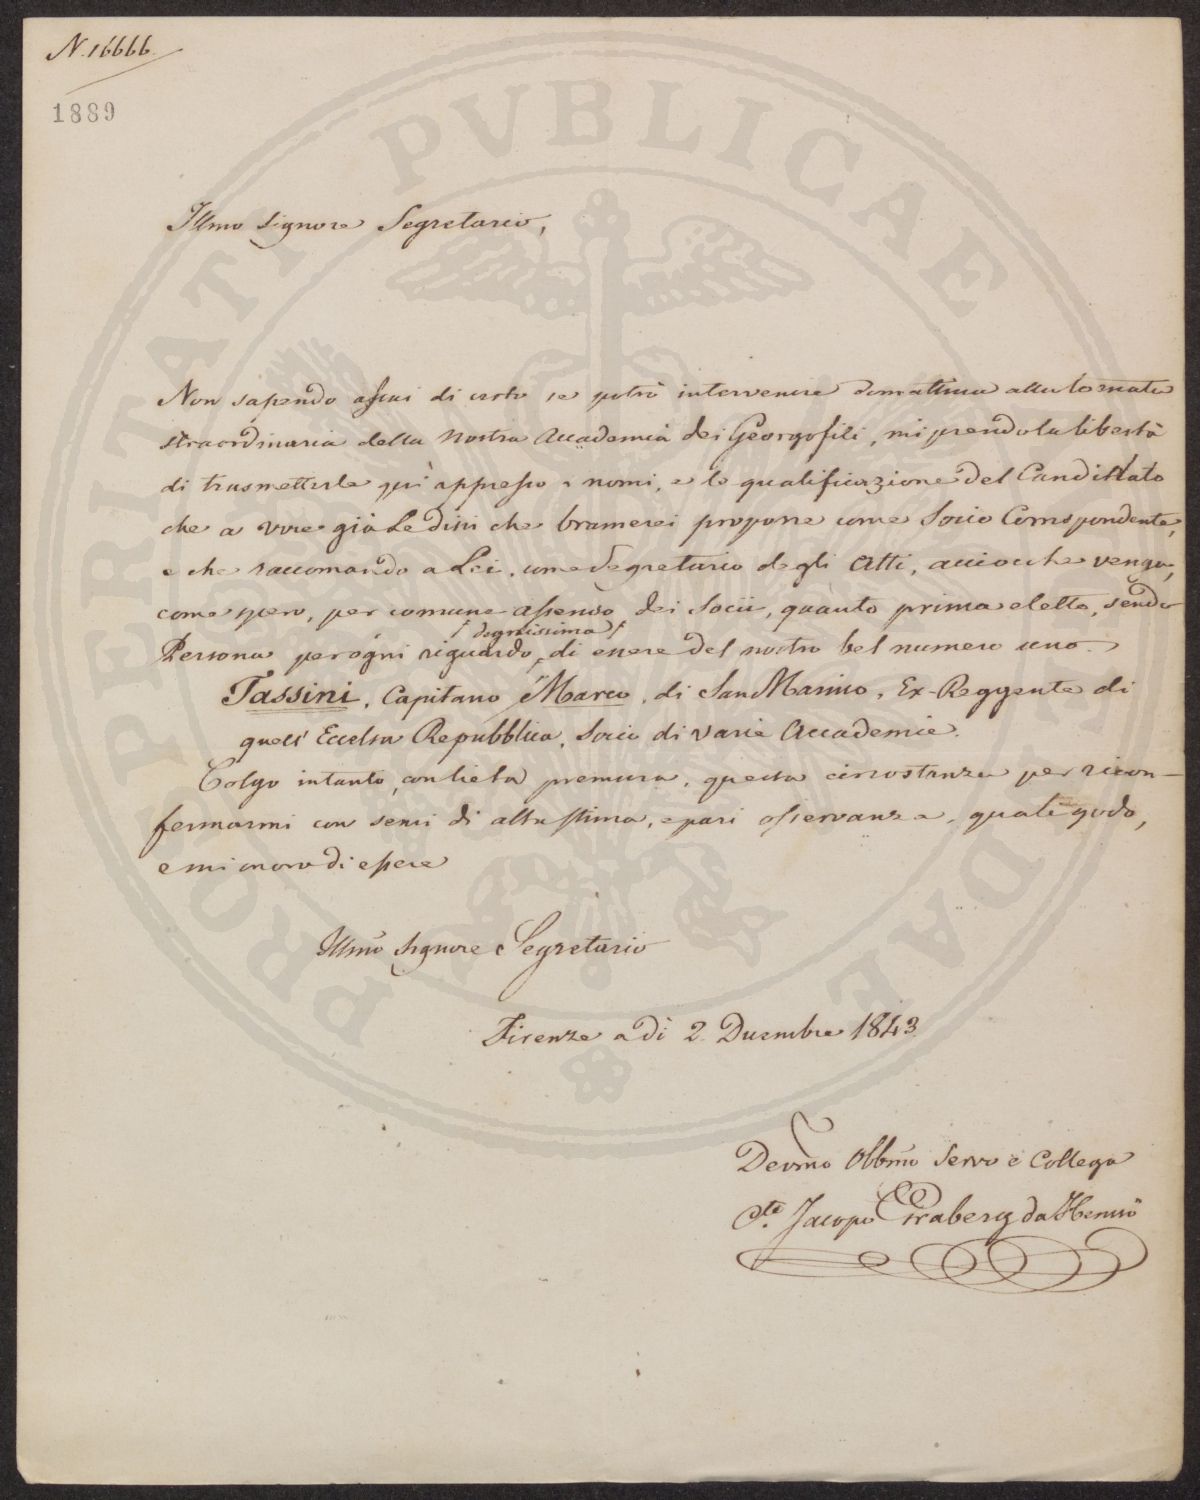 N. 16666.
1889
Illmo Signore Segretario,
Non sapendo assai di certo se potrò intervenire domattina alla tornata
straordinaria della nostra Accademia dei Georgofili, mi prendo la libertà
di trasmetterle quì appresso i nomi, e le qualificazione del Candidato
che a voce già Le dissi che bramerei proporre come Socio Corrispondente,
e che raccomando a Lei, come Segretario degli Atti, acciocche venga,
come spero, per comune assenso dei Socii, quanto prima eletto, sendo
degnissima
Persona per ogni riguardo, di essere del nostro bel numero uno.
Tassini, Capitano Marco, di San Marino, Ex-Reggente di
quell' Eccelsa Repubblica, Socio di varie Accademie.
Colgo intanto, con lieta premura, questa circostanza per ricon-
fermarmi con sensi di alta stima, e pari osservanza, quali godo,
e mi onoro di essere
Illmo Signore Segretario
Firenze a dì 2. Dicembre 1843.
Devmo Obbmo Servo e Collega
Cte. Jacopo Graberg da Hemsö
PROSPERITATI PVBLICAE